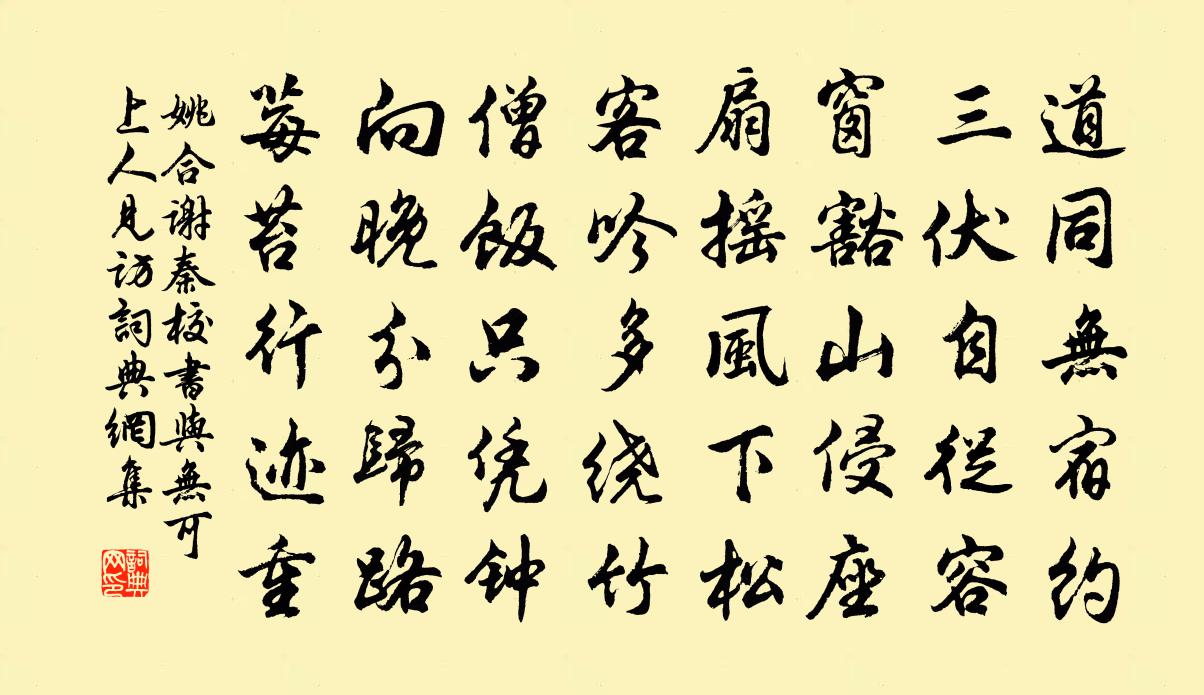 道同無宿約
三伏自從容
窗豁山侵座
扇搖風下松
客吟多绕竹
僧飯只凭钟
向晚分歸路
莓苔行迹重
姚合謝秦校書與無可
上人見訪詞典網集
詞典網印